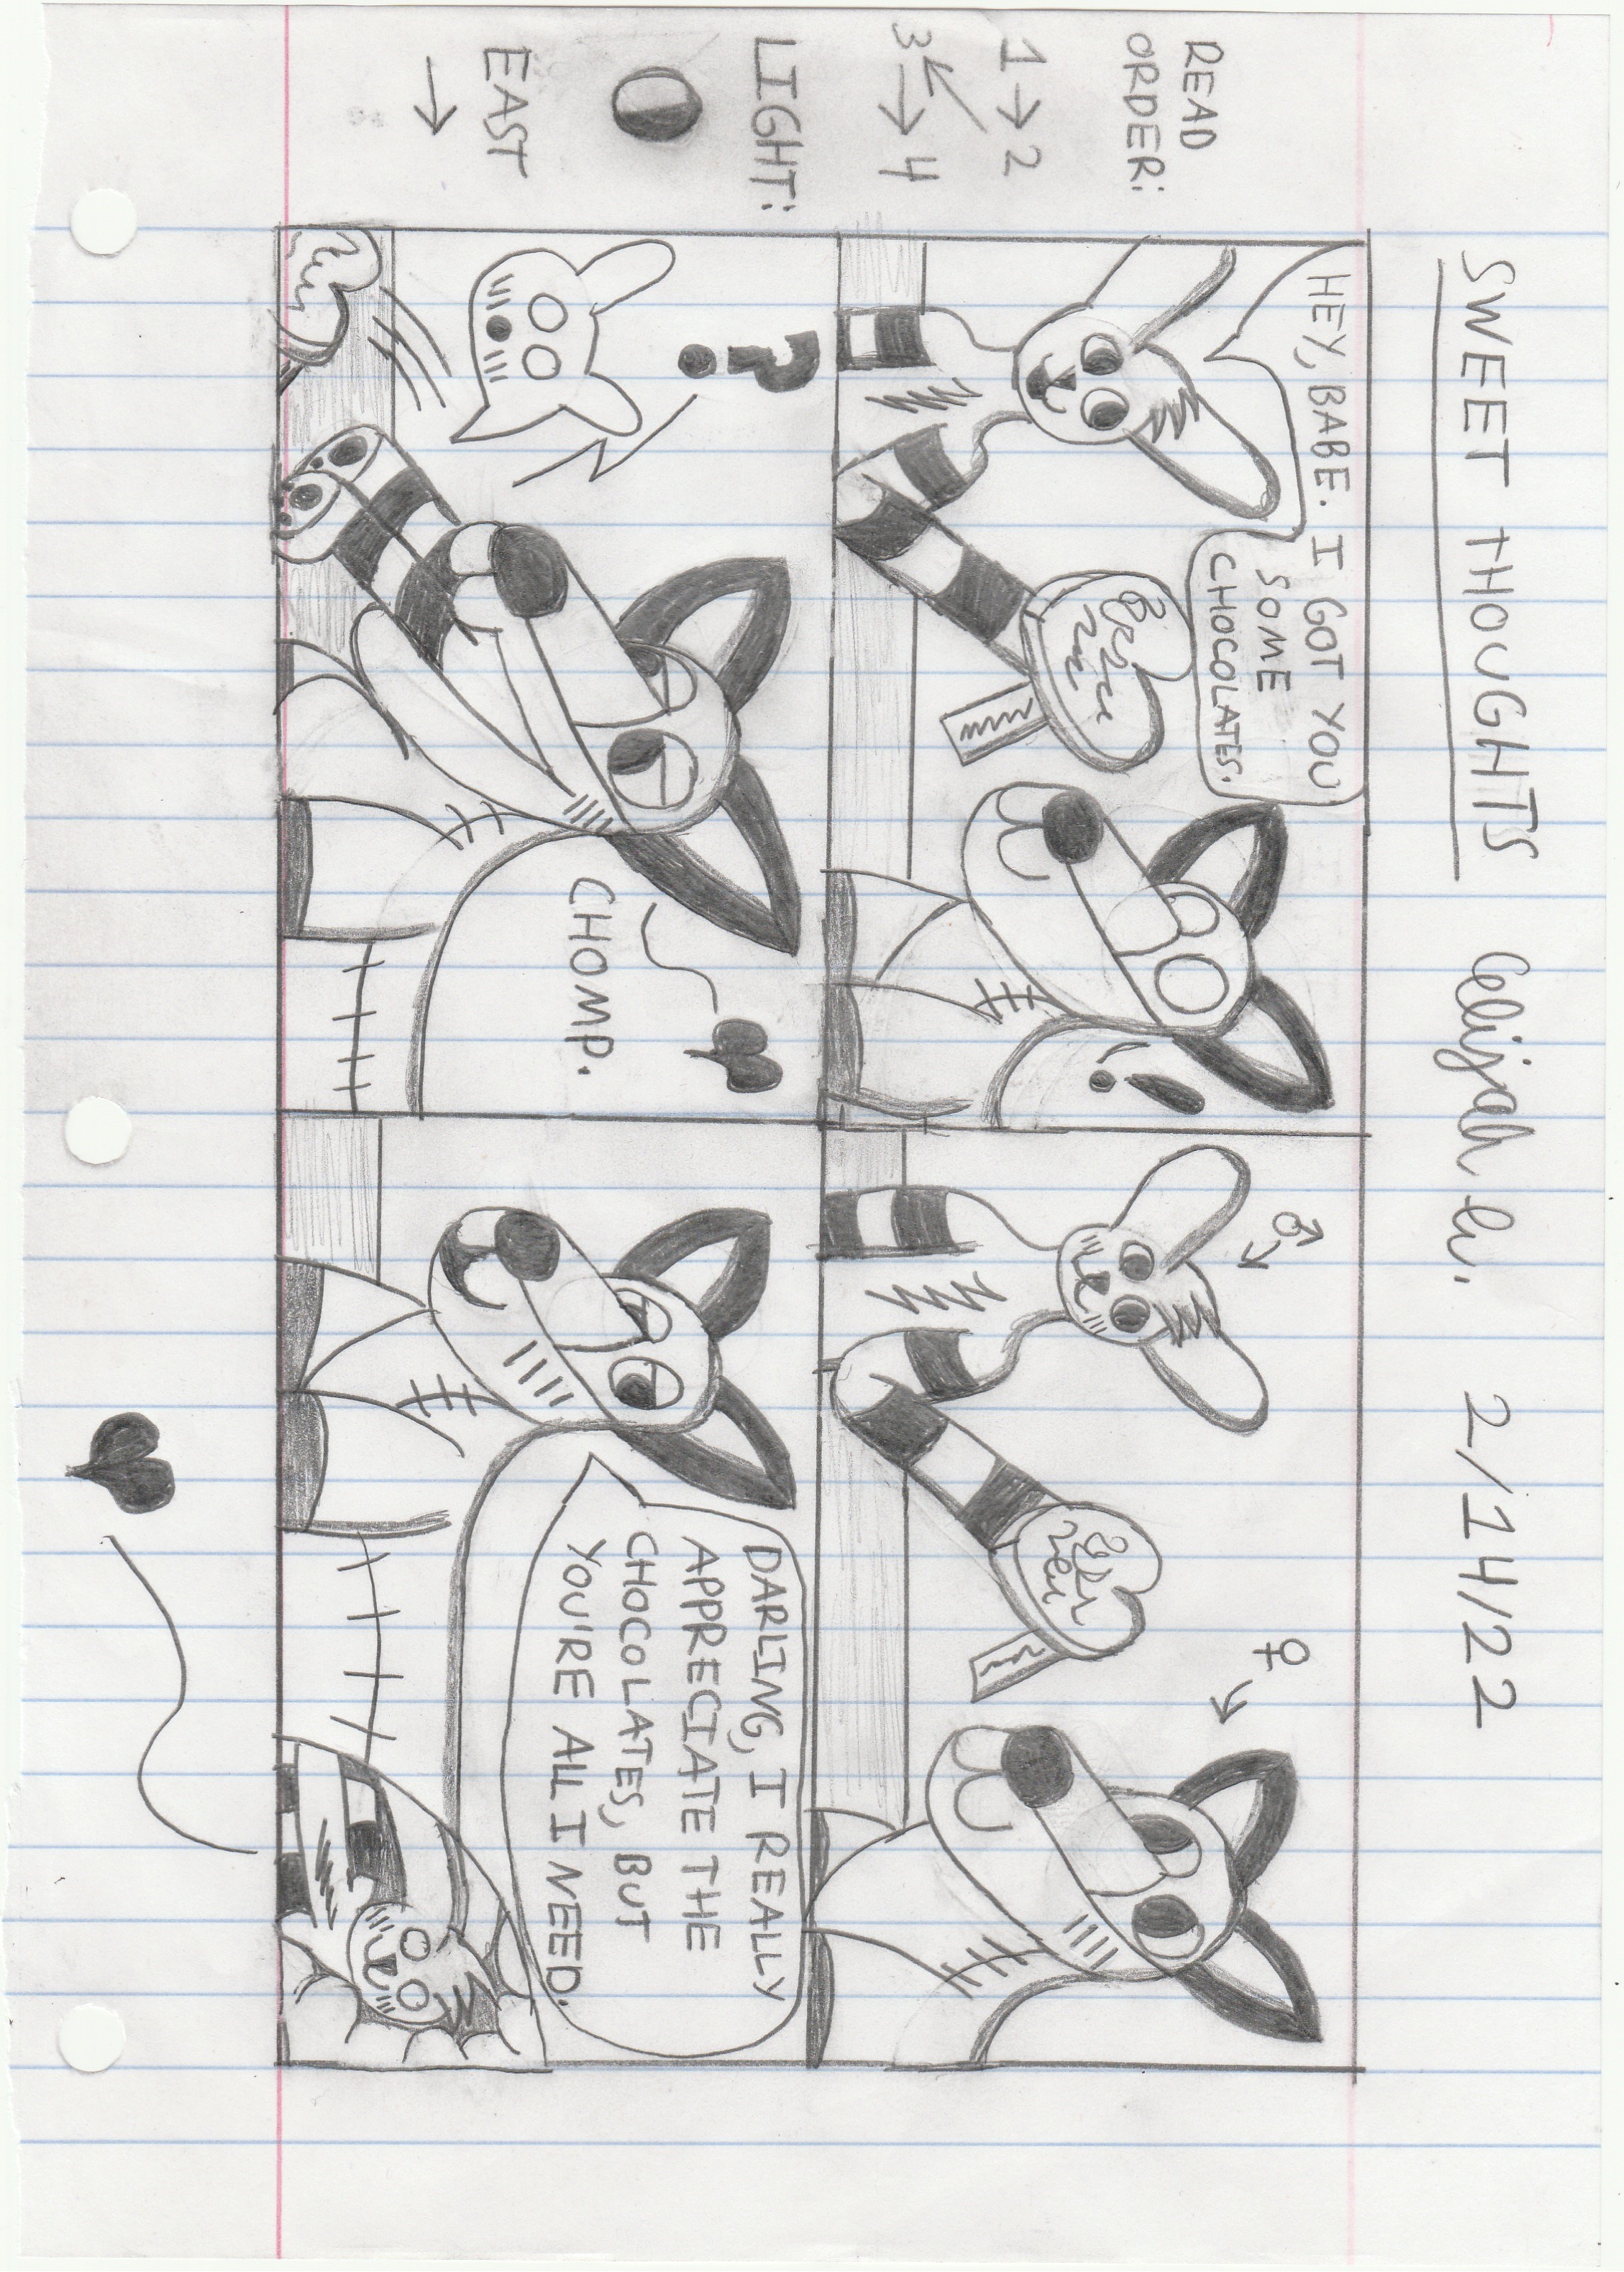 SWEET THOUGHTS Elijah W. 2/14/22
READ
ORDER:
1 → 2
3 → 4
LIGHT:
EAST
→
HEY, BABE. I GOT YOU
SOME
CHOCOLATES.
!
♂
♀
?
CHOMP.
DARLING, I REALLY
APPRECIATE THE
CHOCOLATES, BUT
YOU'RE ALL I NEED.